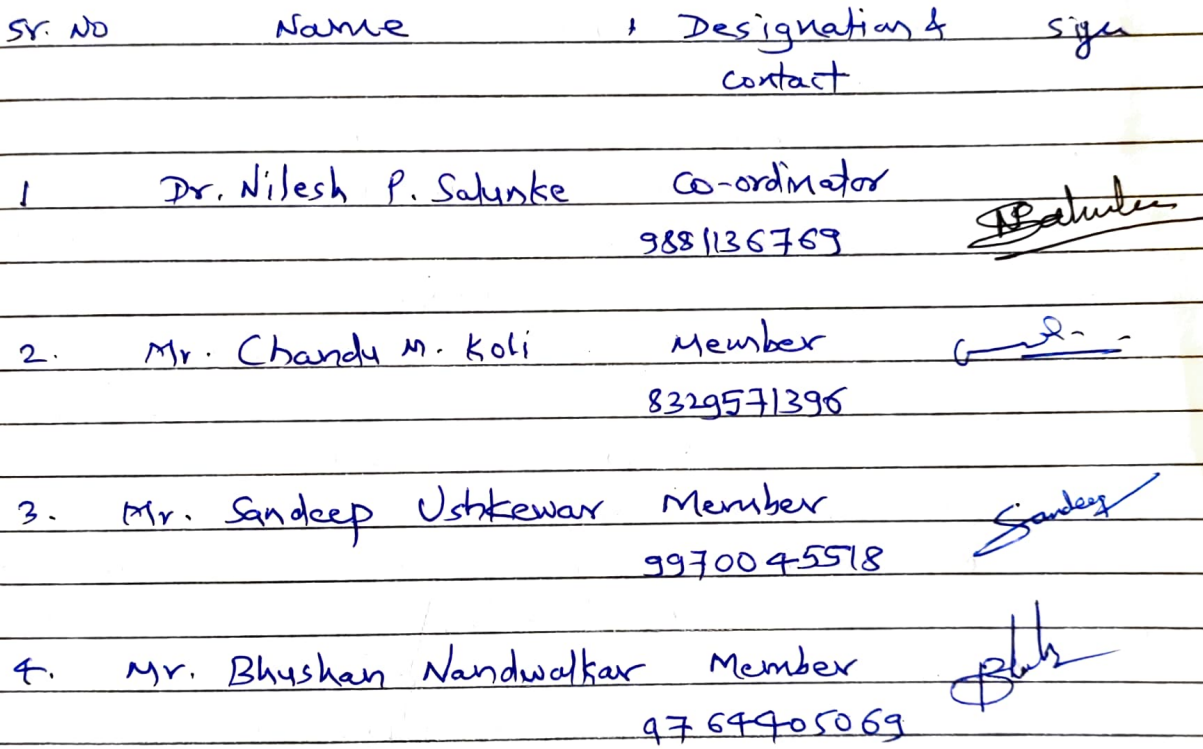 Sr. No Name Designation & Sign
contact
1 Dr. Nilesh P. Salunke Co-ordinator
9881136769
2. Mr. Chandu M. Koli Member
8329571396
3. Mr. Sandeep Ushkewar Member Sandeep
9970045518
4. Mr. Bhushan Nandwalkar Member
9764405069